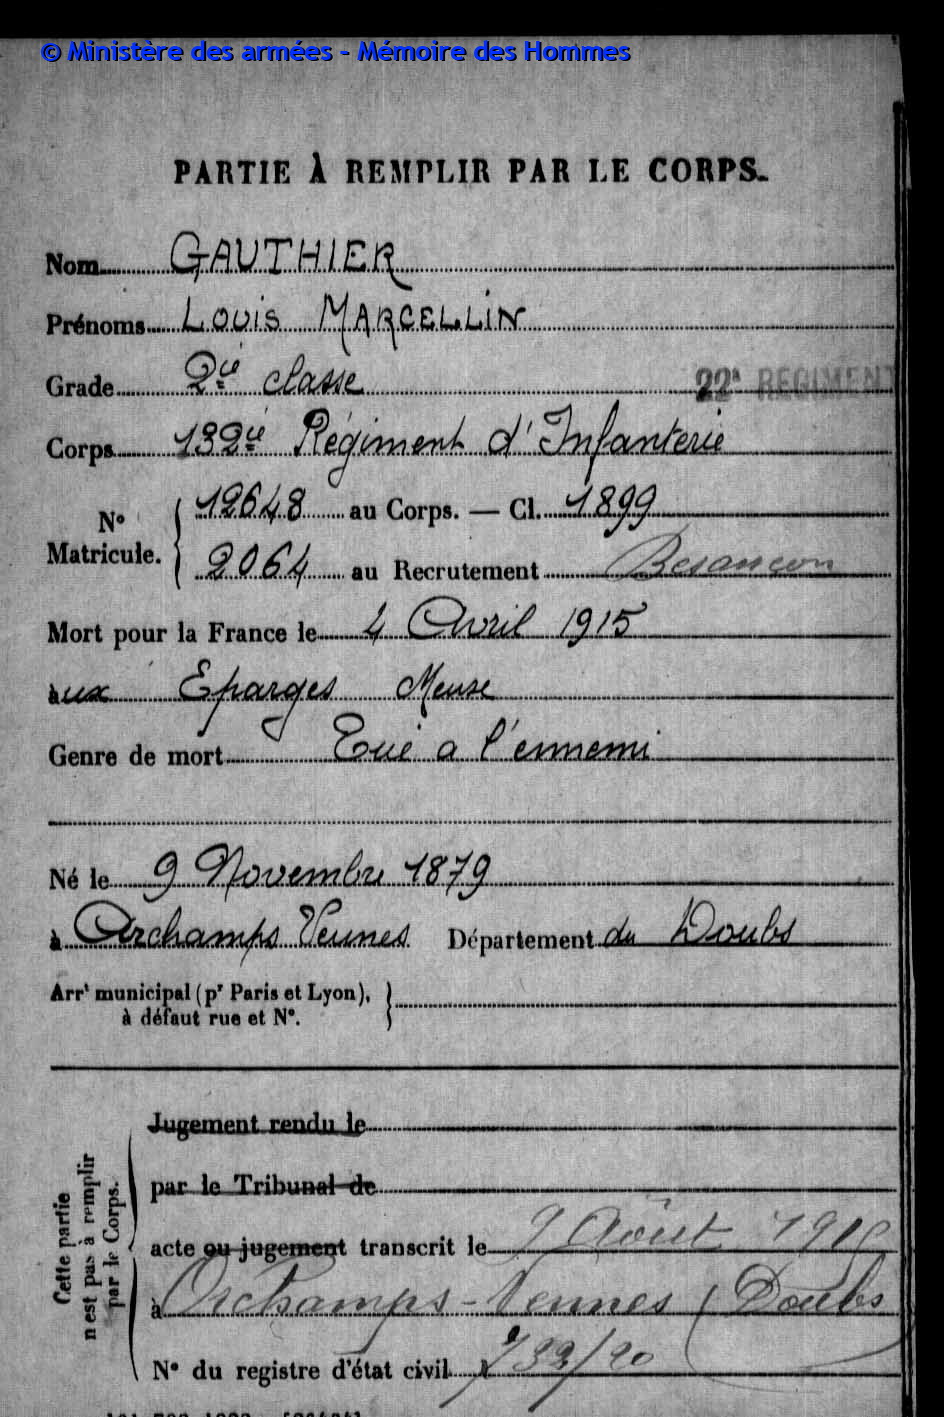 © Ministère des armées - Mémoire des Hommes
PARTIE À REMPLIR PAR LE CORPS.
Nom GAUTHIER
Prénoms LOUIS MARCELLIN
Grade 2ie classe 22e REGIMENT
Corps 132ie Régiment d'Infanterie
N° Matricule. 12648 au Corps. — Cl. 1899
2064 au Recrutement Besançon
Mort pour la France le 4 Avril 1915
aux Eparges Meuse
Genre de mort Tué a l'ennemi
Né le 9 Novembre 1879
à Orchamps Vennes Département du Doubs
Arrt municipal (pr Paris et Lyon),
à défaut rue et N°.
Cette partie
n'est pas à remplir
par le Corps.
Jugement rendu le
par le Tribunal de
acte ou jugement transcrit le 9 Août 1915
à Orchamps-Vennes (Doubs
N° du registre d'état civil